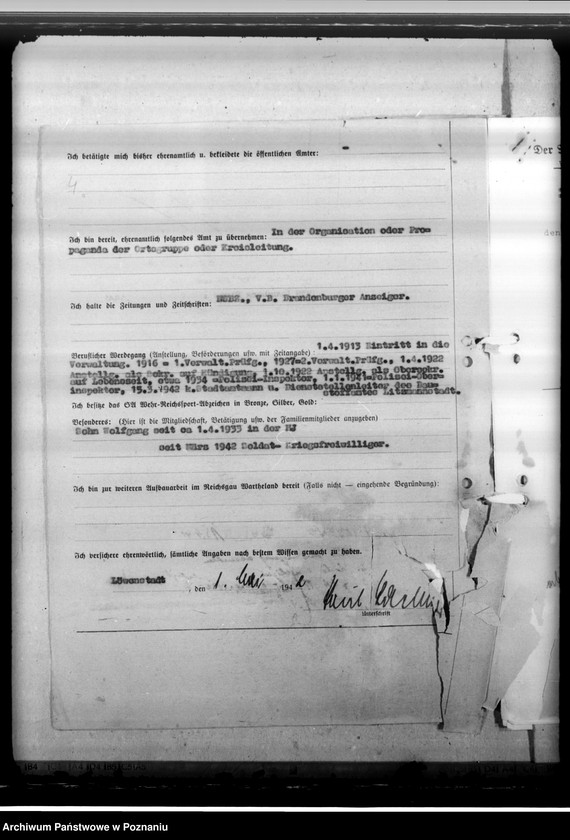 Ich betätigte mich bisher ehrenamtlich u. bekleidete die öffentlichen Ämter: -
4
Der
den
Ich bin bereit, ehrenamtlich folgendes Amt zu übernehmen: In der Organisation oder Pro=
paganda der Ortsgruppe oder Kreisleitung.
Ich halte die Zeitungen und Zeitschriften: V.B. Brandenburger Anzeiger.
Beruflicher Werdegang (Anstellung, Beförderungen usw. mit Zeitangabe): 1.4.1913 Eintritt in die
Verwaltung. 1916 = 1.Verwalt.Prüfg., 1927=2.Verwalt.Prüfg., 1.4.1922
Anstellg. als Sekr. auf Kündigung, 1.10.1922 Anstellg. als
auf Lebenszeit, etwa 1934 =Polizei-Inspektor, 1.1. Polizei-Ober=
inspektor, 15.3.1942 Stadtamtmann u. Dienststellenleiter des Bau=
stoffamtes Litzmannstadt.
Ich besitze das SA Wehr-Reichssport-Abzeichen in Bronze, Silber, Gold:
Besonderes: (Hier ist die Mitgliedschaft, Betätigung usw. der Familienmitglieder anzugeben)
Sohn Wolfgang seit ca 1.4.1933 in der HJ
seit März 1942 Soldat- Kriegsfreiwilliger.
Ich bin zur weiteren Aufbauarbeit im Reichsgau Wartheland bereit (Falls nicht — eingehende Begründung):
Ich versichere ehrenwörtlich, sämtliche Angaben nach bestem Wissen gemacht zu haben.
, den 1. Mai 1942
Unterschrift
Archiwum Państwowe w Poznaniu